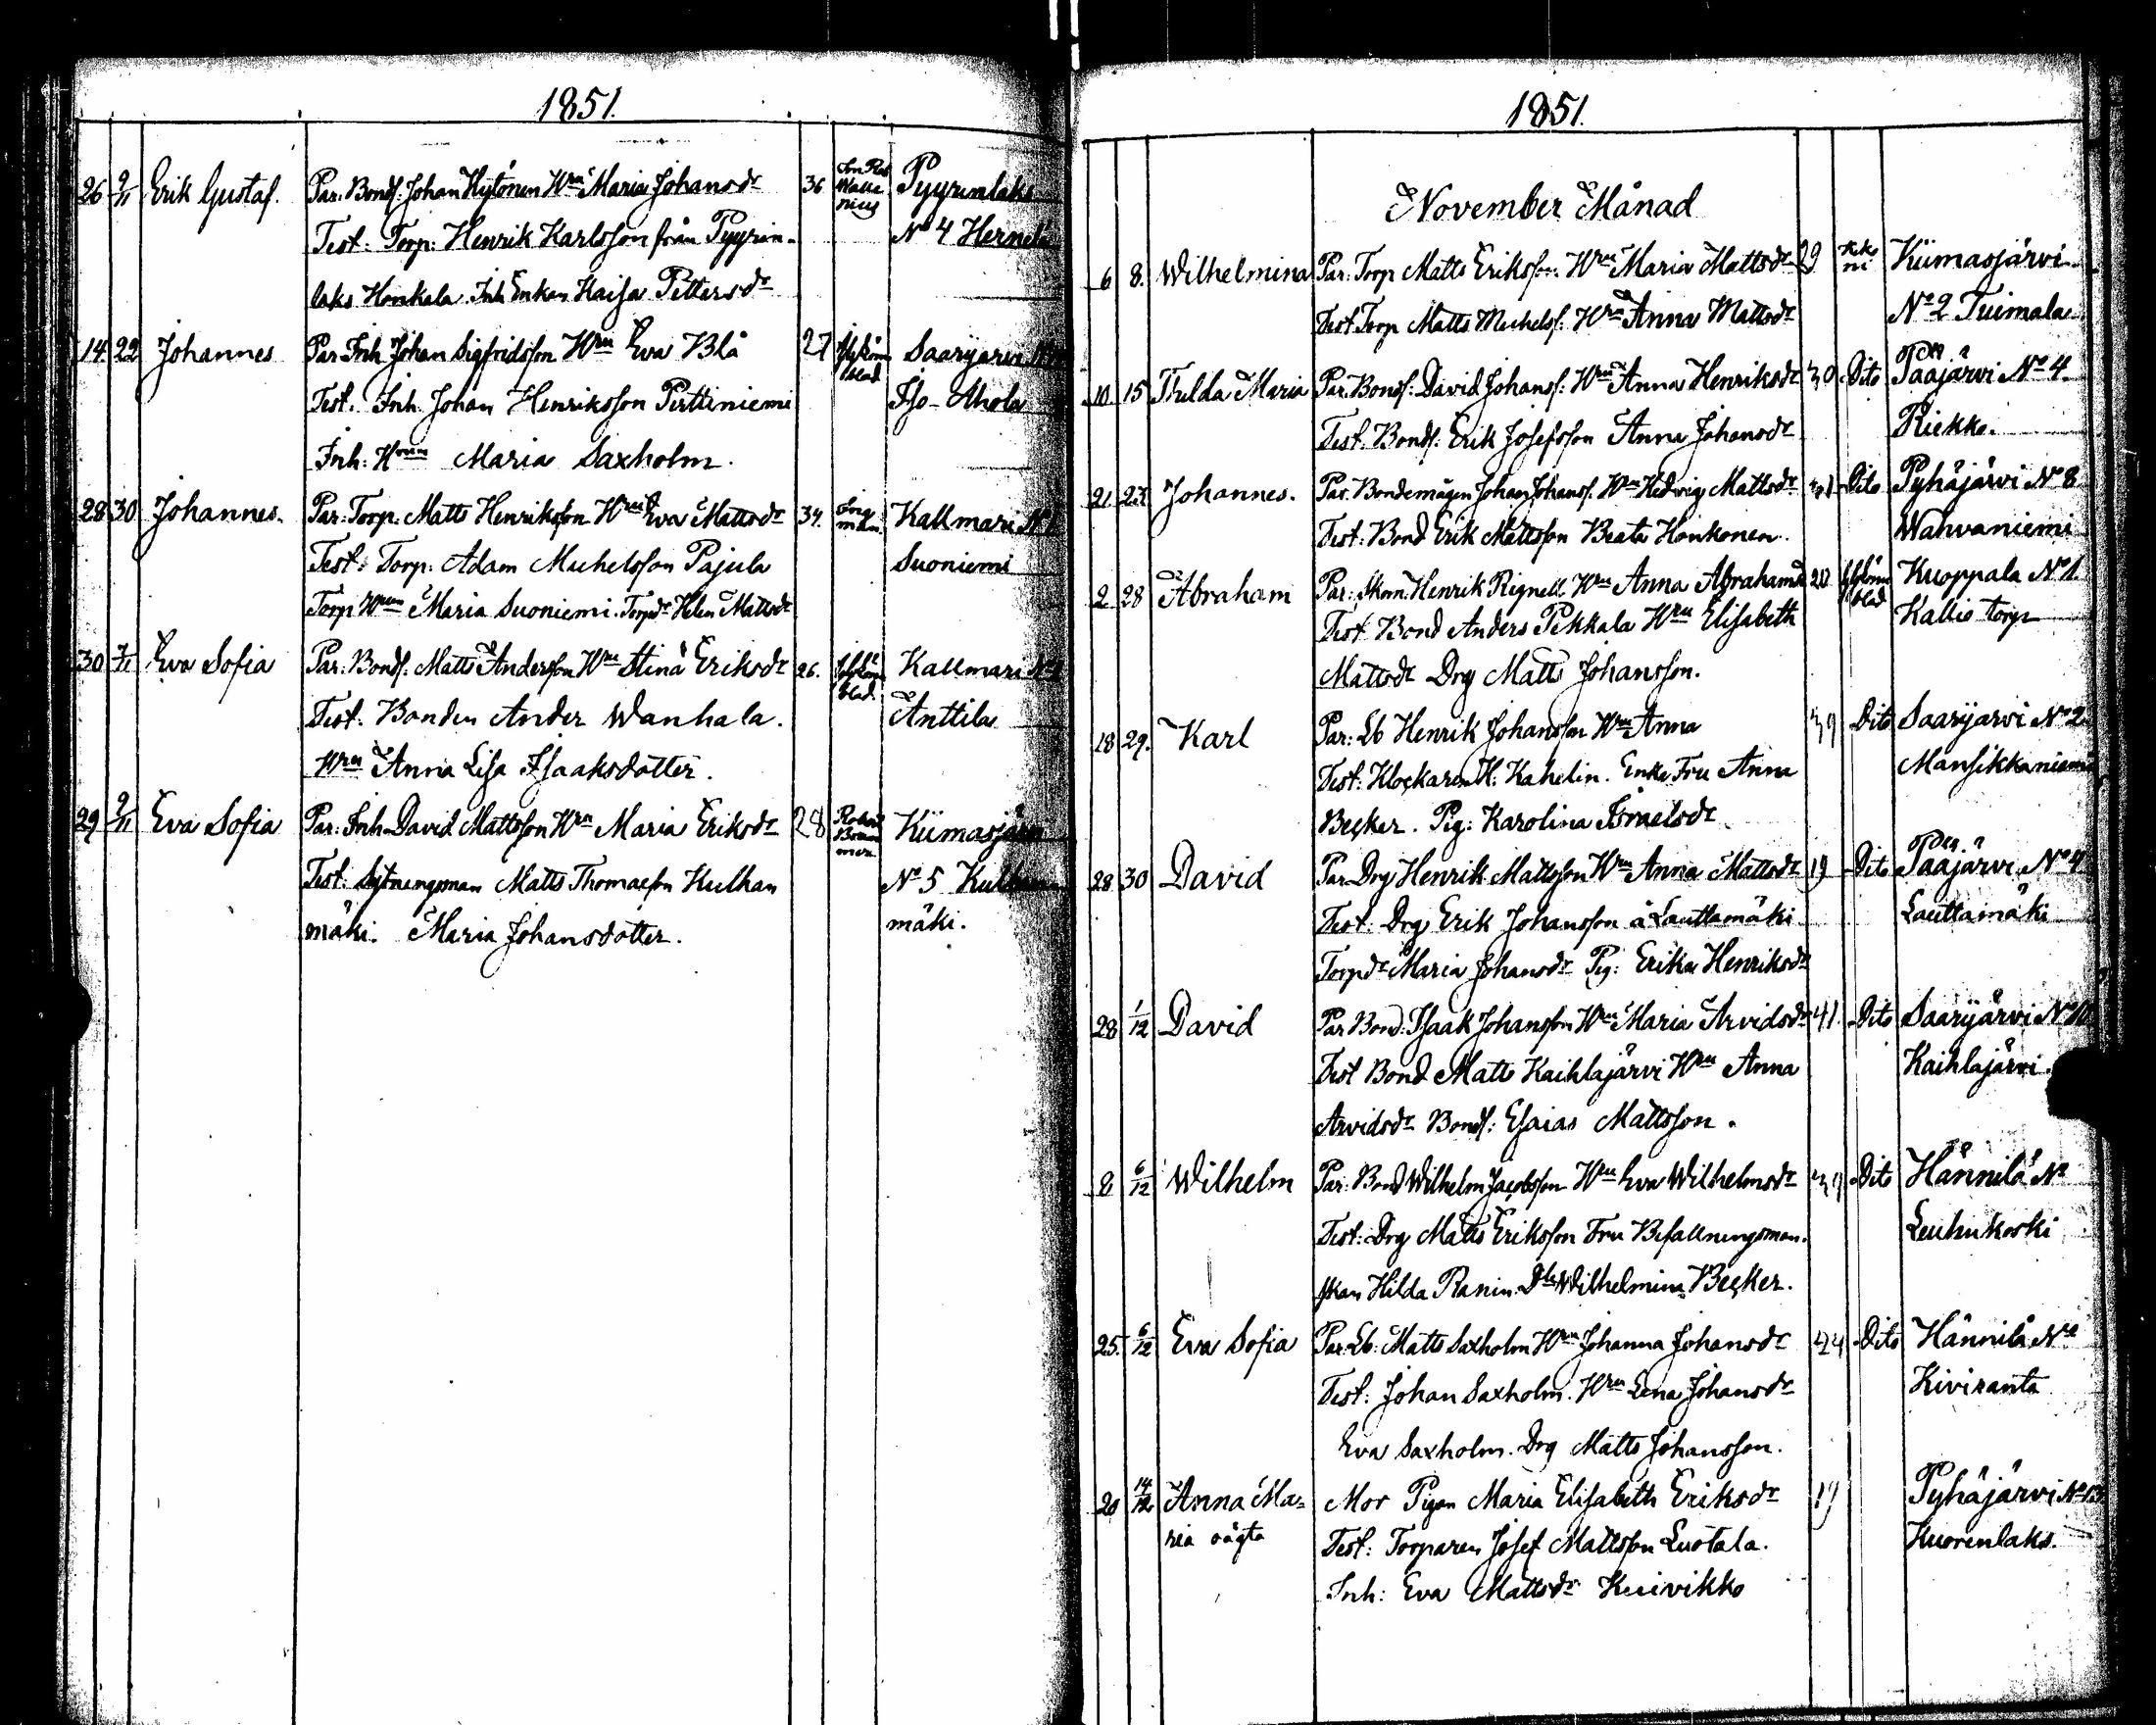 1851.
26 2/11 Erik Gustaf. Par. Bonds. Johan Hytönen Hru Maria Johansdr 36 Pyyrinlaks
Test: Torp: Henrik Karlsson från Pyyrin- No 4 Hernelä
laks Honkala. Inh Enkan Kaisa Pettersdr
14. 22 Johannes Par Inh Johan Sigfridsson Hru Eva Blå 27 Saarijärvi
Test. Inh. Johan Henriksson Perttiniemi Iso-Ahola
Inh: Hrun Maria Saxholm.
28 30 Johannes. Par: Torp. Matts Henriksson Hru Eva Mattsdr 34. Kallmari No 1
Test: Torp: Adam Michelsson Pajula Suoniemi
Torp Hrun Maria Suoniemi. Torpdr Helen Mattsdr
30 2/11 Eva Sofia Par: Bonds. Matts Andersson Hru Stina Eriksdr 26. Kallmari
Test: Bonden Ander Wanhala. Anttila
Hru Anna Lisa Isaaksdotter.
29 2/11 Eva Sofia Par: Inh David Mattsson Hru Maria Eriksdr 28 Kiimasjärvi
Test: Sytningsman Matts Thomasson Kulhan No 5 Kulhan
mäki. Maria Johansdotter. mäki.
1851.
November Månad
6 8. Wilhelmina Par: Torp Matts Eriksson. Hru Maria Mattsdr 29 Kiimasjärvi
Test. Torp Matts Michelss. Hru Anna Mattsdr No 2 Tuimala
10 15 Thilda Maria Par. Bonds: David Johans: Hru Anna Henriksdr 30 Dito Pääjärvi No 4.
Test. Bonds: Erik Josefsson Anna Johansdr Riekko.
21. 23. Johannes. Par. Bondemågen Johan Johanss. Hru Hedwig Mattsdr Dito Pyhäjärvi No 8
Test: Bond Erik Mattsson Beata Honkonen. Wahvaniemi
2 28 Abraham Par: Skom. Henrik Rignell Hru Anna Abrahamsdr Kuoppala No 1.
Test. Bond Anders Pekkala Hru Elisabeth Kallio torp
Mattsdr Drg Matts Johansson.
18 29. Karl Par: Lb Henrik Johansson Hru Anna 39 Dito Saarijärvi No 2
Test: Klockaren H: Kahelin. Enke Fru Anna Mansikkaniemi
Becker. Pig: Karolina Israelsdr
28 30 David Par Drg Henrik Mattsson Hru Anna Mattsdr 19 Dito Pääjärvi No 4
Test: Drg Erik Johansson å Lauttamäki Lauttamäki
Torpdr Maria Johansdr Pig: Erika Henriksdr
28 1/12 David Par Bond: Isaak Johansson Hru Maria Arvidsdr 41. Dito Saarijärvi No 10
Test Bond Matts Kaihlajärvi Hru Anna Kaihlajärvi.
Arvidsdr Bonds: Esaias Mattsson.
8 6/12 Wilhelm Par: Bond Wilhelm Jacobsson Hru Eva Wilhelmsdr 39 Dito Hännilä No
Test: Drg Matts Eriksson Fru Befallningsman- Leuhukoski
skan Hilda Ranin. Wilhelmina Becker.
25. 6/12 Eva Sofia Par: Lb: Matts Saxholm Hru Johanna Johansdr 44 Dito Hännilä No
Test: Johan Saxholm. Hru Lena Johansdr Kiviranta
Eva Saxholm. Drg Matts Johansson.
20 14/12 Anna Ma= Mor Pigan Maria Elisabeth Eriksdr 19 Pyhäjärvi No 13.
ria oägta Test: Torparen Josef Mattsson Luotala. Kuorenlaks.
Inh: Eva Mattsdr Kuivikko